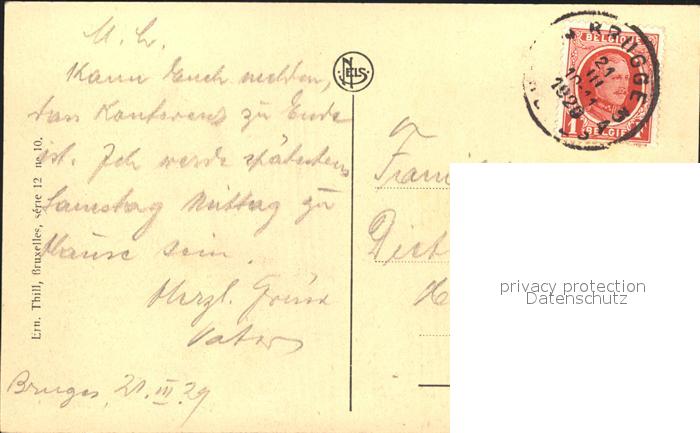 M. L.
Kann Euch melden,
dass Konferenz zu Ende
ist. Ich werde spätestens
Samstag Mittag zu
Hause sein.
Herzl. Grüsse
Vater
Bruges 21. III. 29
Ern. Thill, Bruxelles, série 12 no 10.
NELS
BRUGGE 3
21 III
1929
BELGIQUE
1 1
BELGIË
Famil
Diet
privacy protection
Datenschutz